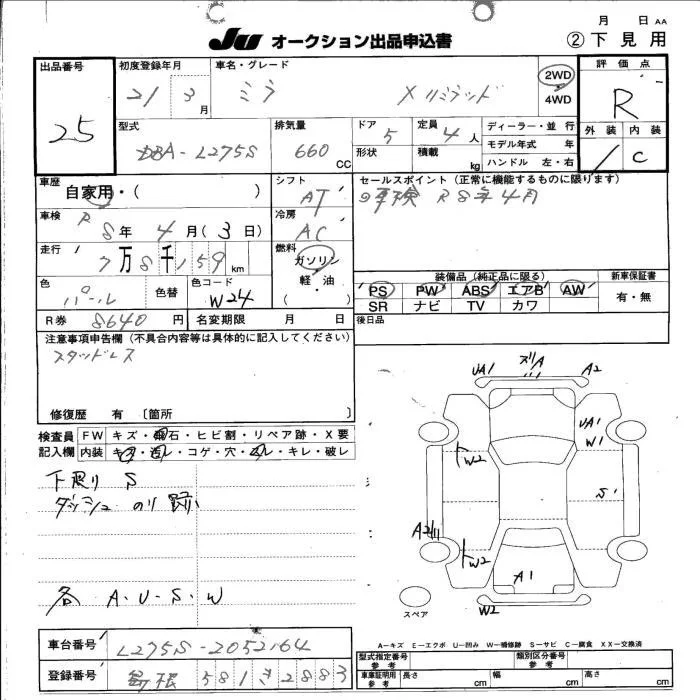 月 日 AA
JU オークション出品申込書
② 下見用
出品番号
25
初度登録年月
21 3 月
車名・グレード
ミラ X リミテッド
2WD
4WD
評価点
R
外装 内装
/ C
型式
DBA-L275S
排気量
660 CC
ドア 5
形状
定員 4 人
積載 kg
ディーラー・並行
モデル年式 年
ハンドル 左・右
車歴
自家用・( )
シフト
AT
セールスポイント (正常に機能するものに限ります)
車検 R8年4月
車検
R 8 年 4 月 ( 3 日)
冷房
AC
走行
7万8千159 km
燃料
ガソリン
軽・油
( )
色
パール
色替
色コード
W24
装備品 (純正品に限る)
PS PW ABS エアB AW
SR ナビ TV カワ
新車保証書
有・無
R券 8640 円
名変期限 月 日
後日品
注意事項申告欄 (不具合内容等は具体的に記入してください)
スタッドレス
修復歴 有 〔箇所 〕
検査員
記入欄
FW キズ・飛石・ヒビ割・リペア跡・X要
内装 キズ・汚レ・コゲ・穴・スレ・キレ・破レ
下廻り S
ダッシュ のり跡
各 A・U・S・W
UA1 ズリA A2
UA1
W1
W2
S
A2
W2
A1
W2
スペア
A-キズ E-エクボ U-凹み W-補修跡 S-サビ C-腐食 XX-交換済
車台番号
L275S-2052164
登録番号
581 き 2883
型式指定番号
参考
類別区分番号
参考
車庫証明用
参考
長さ cm
幅 cm
高さ cm